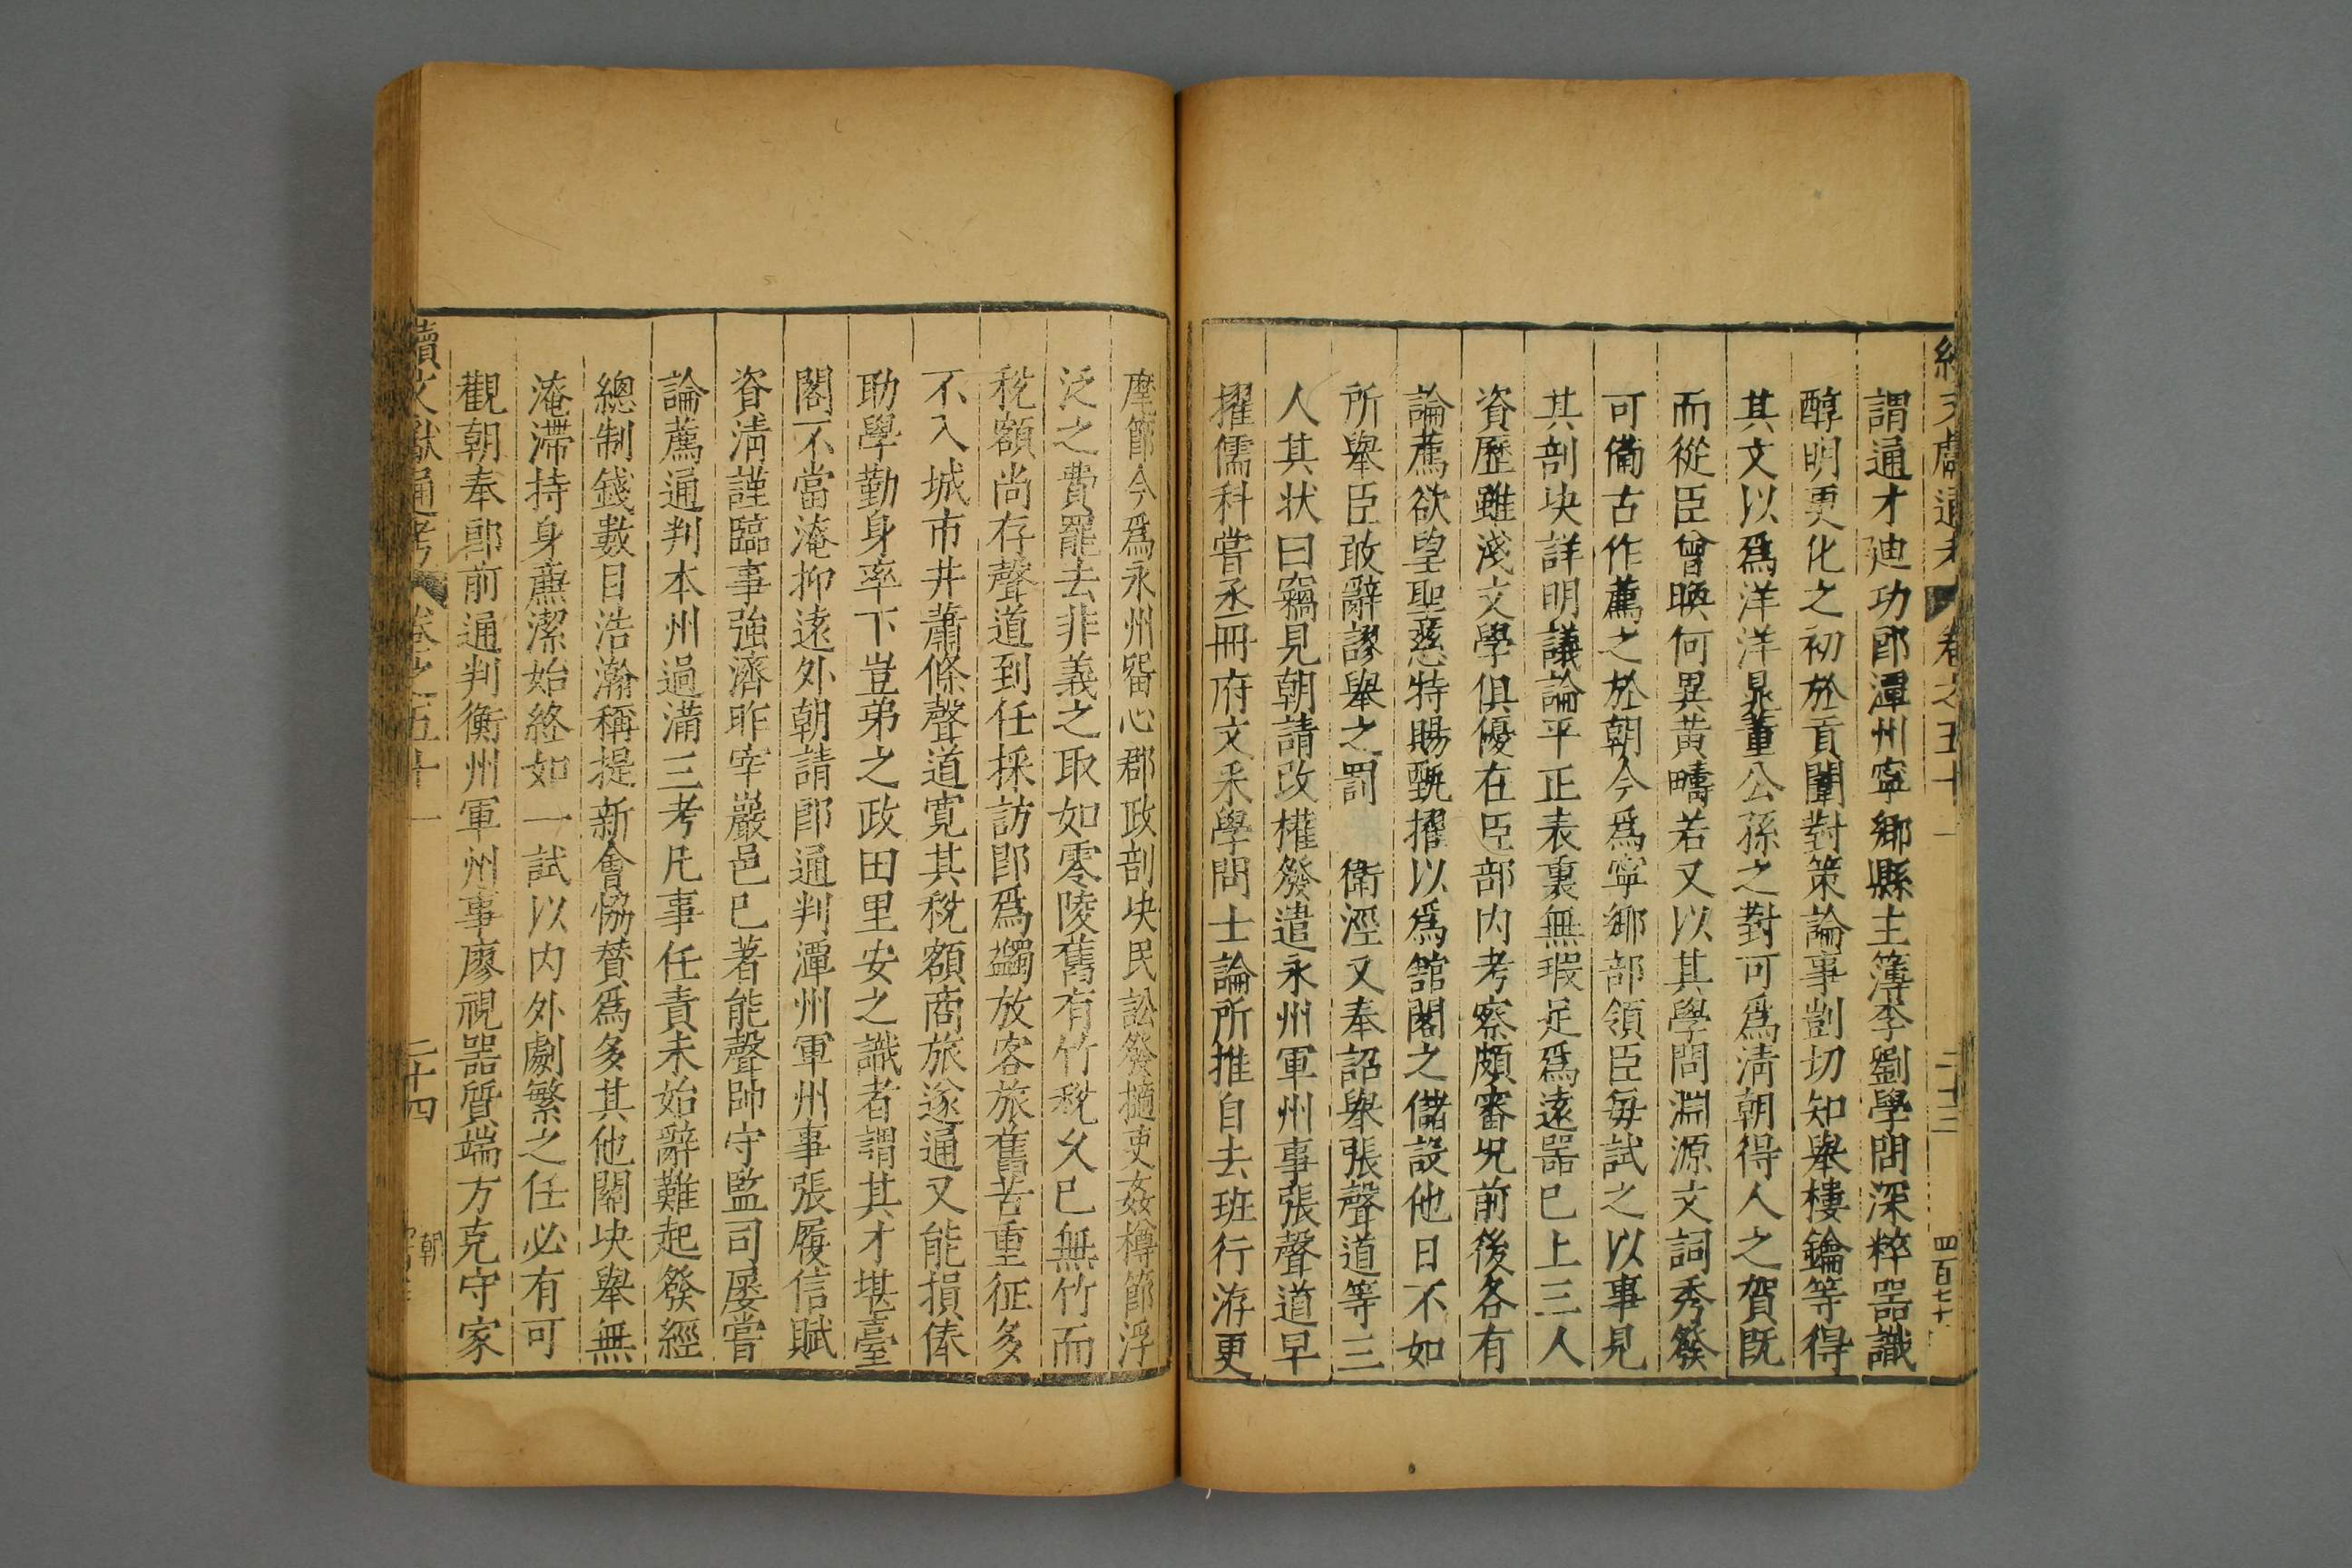 續文獻通考 卷之五十一 二十三 四百七十
謂通才廸功郎潭州寧鄉縣主簿李劉學問深粹噐識
醇明更化之初於貢闈對策論事剴切知舉樓鑰等得
其文以爲洋洋晁董公孫之對可爲清朝得人之賀既
而從臣曾㬇何異黃疇若又以其學問淵源文詞秀發
可備古作薦之於朝今爲寧鄉部領臣每試之以事見
其剖决詳明議論平正表裏無瑕足爲遠噐巳上三人
資歷雖淺文學俱優在臣部内考察頗審况前後各有
論薦欲望聖慈特賜甄擢以爲舘閣之儲設他日不如
所舉臣敢辭謬舉之罰 衛涇又奉詔舉張聲道等三
人其状曰竊見朝請改權發遣永州軍州事張聲道早
擢儒科嘗丞冊府文采學問士論所推自去班行游更
麾節今爲永州畱心郡政剖决民訟發擿吏姦樽節浮
泛之費罷去非義之取如零陵舊有竹稅乆巳無竹而
稅額尚存聲道到任採訪即爲蠲放客旅舊苦重征多
不入城市井蕭條聲道寛其稅額商旅遂通又能損俸
助學勤身率下豈弟之政田里安之識者謂其才堪臺
閣不當淹抑遠外朝請郎通判潭州軍州事張履信賦
資清謹臨事強濟昨宰嚴邑巳著能聲帥守監司屡嘗
論薦通判本州過滿三考凡事任責未始辭難起發經
總制錢數目浩瀚稱提新會恊贊爲多其他關决舉無
淹滯持身廉潔始終如一試以内外劇繁之任必有可
觀朝奉郎前通判衡州軍州事廖視噐質端方克守家
續文獻通考 卷之五十一 二十四 朝